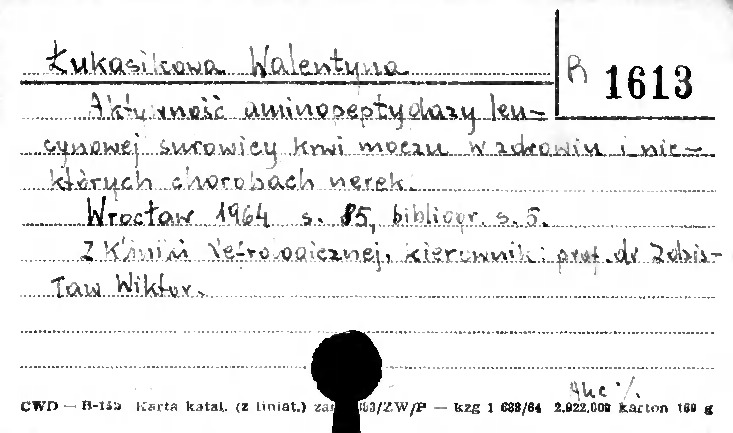 Łukasikowa Walentyna
R 1613
Aktywność aminopeptydazy leu-
cynowej surowicy krwi moczu w zdrowiu i nie-
których chorobach nerek.
Wrocław 1964 s. 85, bibliogr. s. 5.
Z Kliniki Nefrologicznej, kierownik: prof. dr Zdzis-
ław Wiktor.
Akc %.
CWD — Karta katal. (z liniat.) /ZW/P — kzg 1 688/64 2.922.000 karton 160 g